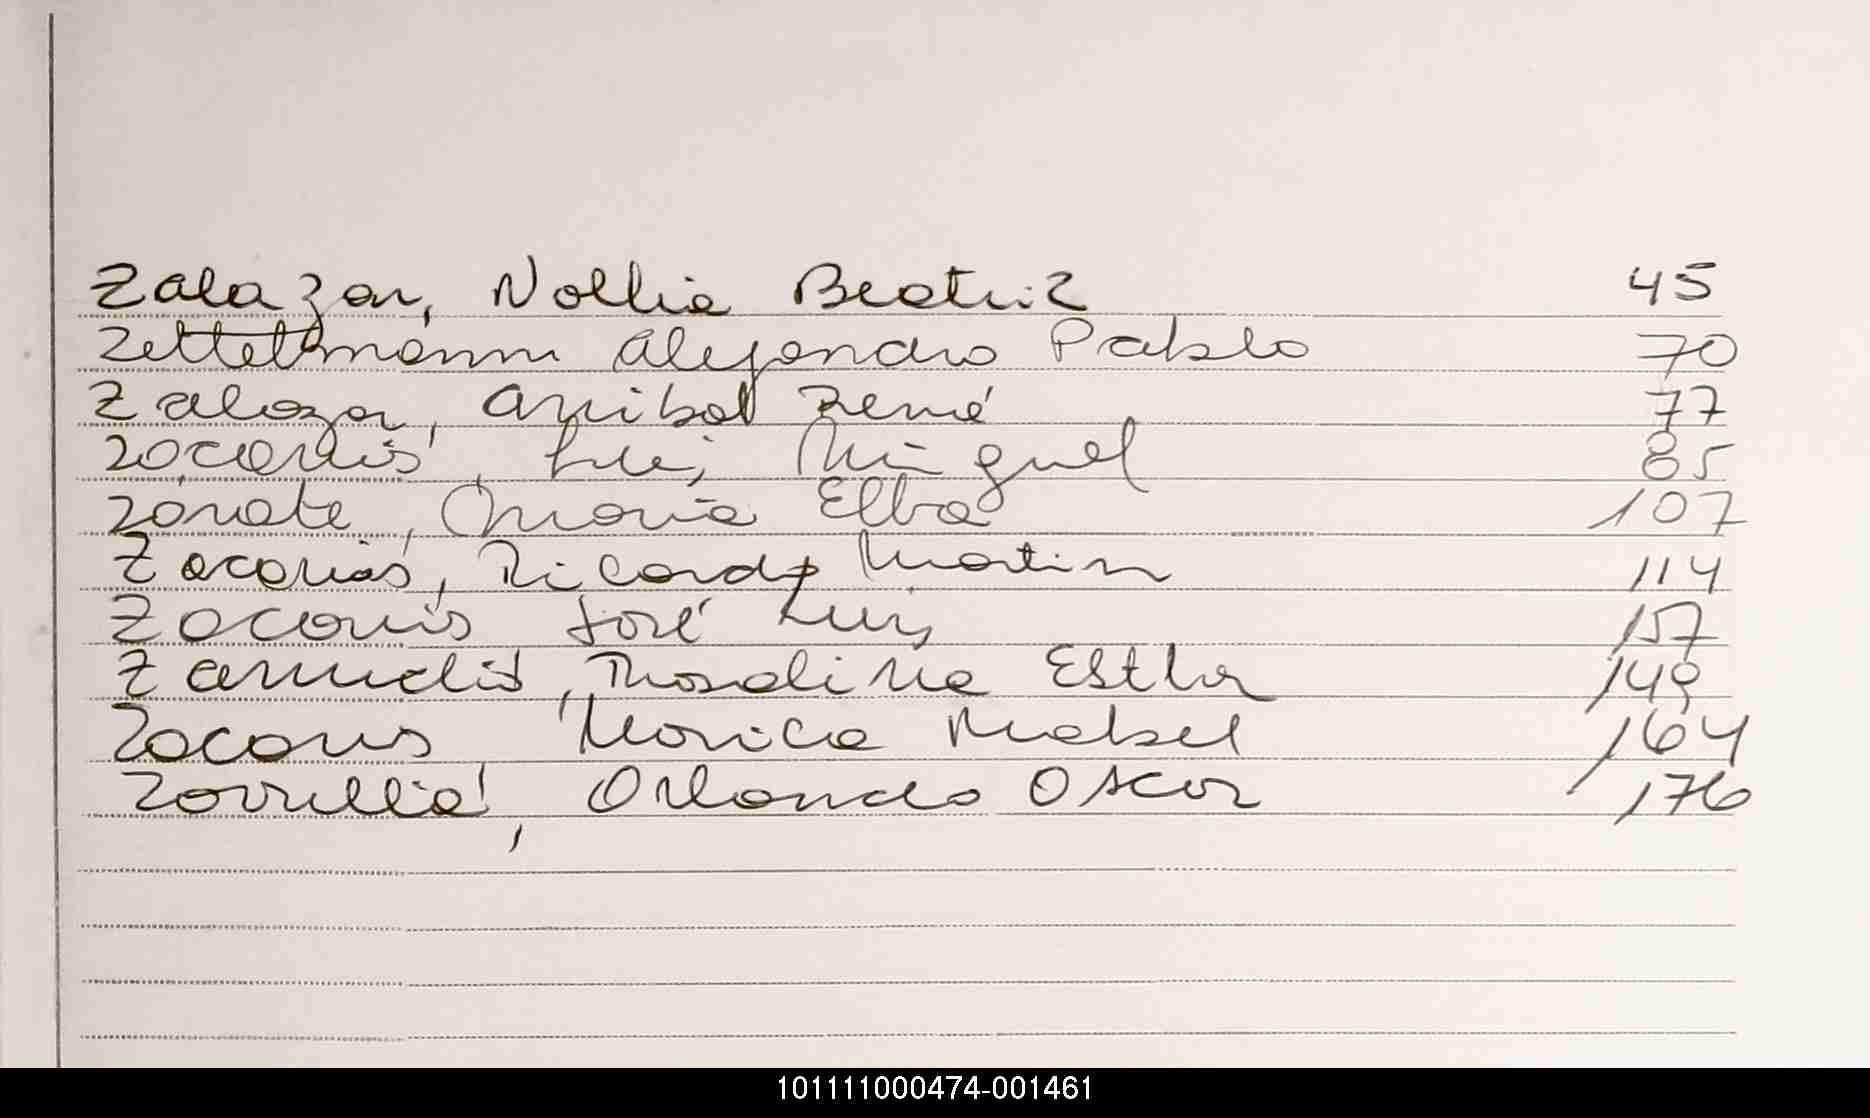 Zalazar, Nollia Beatriz 45
Zettelmann Alejandro Pablo 70
Zalazar, Anibal René 77
Zacarías, Luis Miguel 85
Zárate, María Elba 107
Zacarías, Ricardo Martin 114
Zacarías José Luis 157
Zamudio, Rosalina Esther 149
Zacarias Monica Mabel 164
Orlando Oscar 176
101111000474-001461